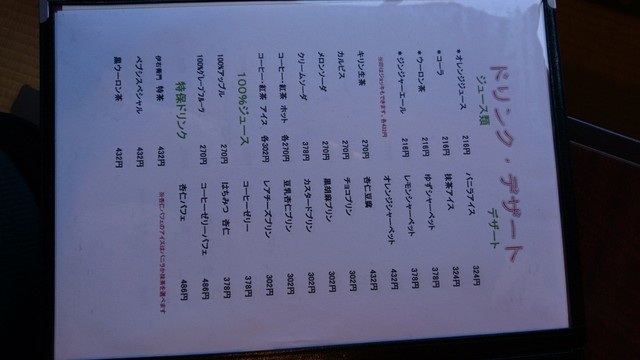 ドリンク・デザート
ジュース類
＊オレンジジュース 216円
＊コーラ 216円
＊ウーロン茶 216円
＊ジンジャーエール 216円
キリン生茶 270円
カルピス 270円
メロンソーダ 270円
クリームソーダ 378円
コーヒー・紅茶 ホット 各270円
コーヒー・紅茶 アイス 各302円
100％ジュース
100％アップル 270円
100％グレープフルーツ 270円
特保ドリンク
伊右衛門 特茶 432円
ペプシスペシャル 432円
黒ウーロン茶 432円
デザート
バニラアイス 324円
抹茶アイス 324円
ゆずシャーベット 378円
レモンシャーベット 378円
オレンジシャーベット 432円
杏仁豆腐 432円
チョコプリン 302円
黒胡麻プリン 302円
カスタードプリン 302円
豆乳杏仁プリン 302円
レアチーズプリン 302円
コーヒーゼリー 378円
はちみつ 杏仁 378円
コーヒーゼリーパフェ 486円
杏仁パフェ 486円
※杏仁パフェのアイスはバニラか抹茶を選べます